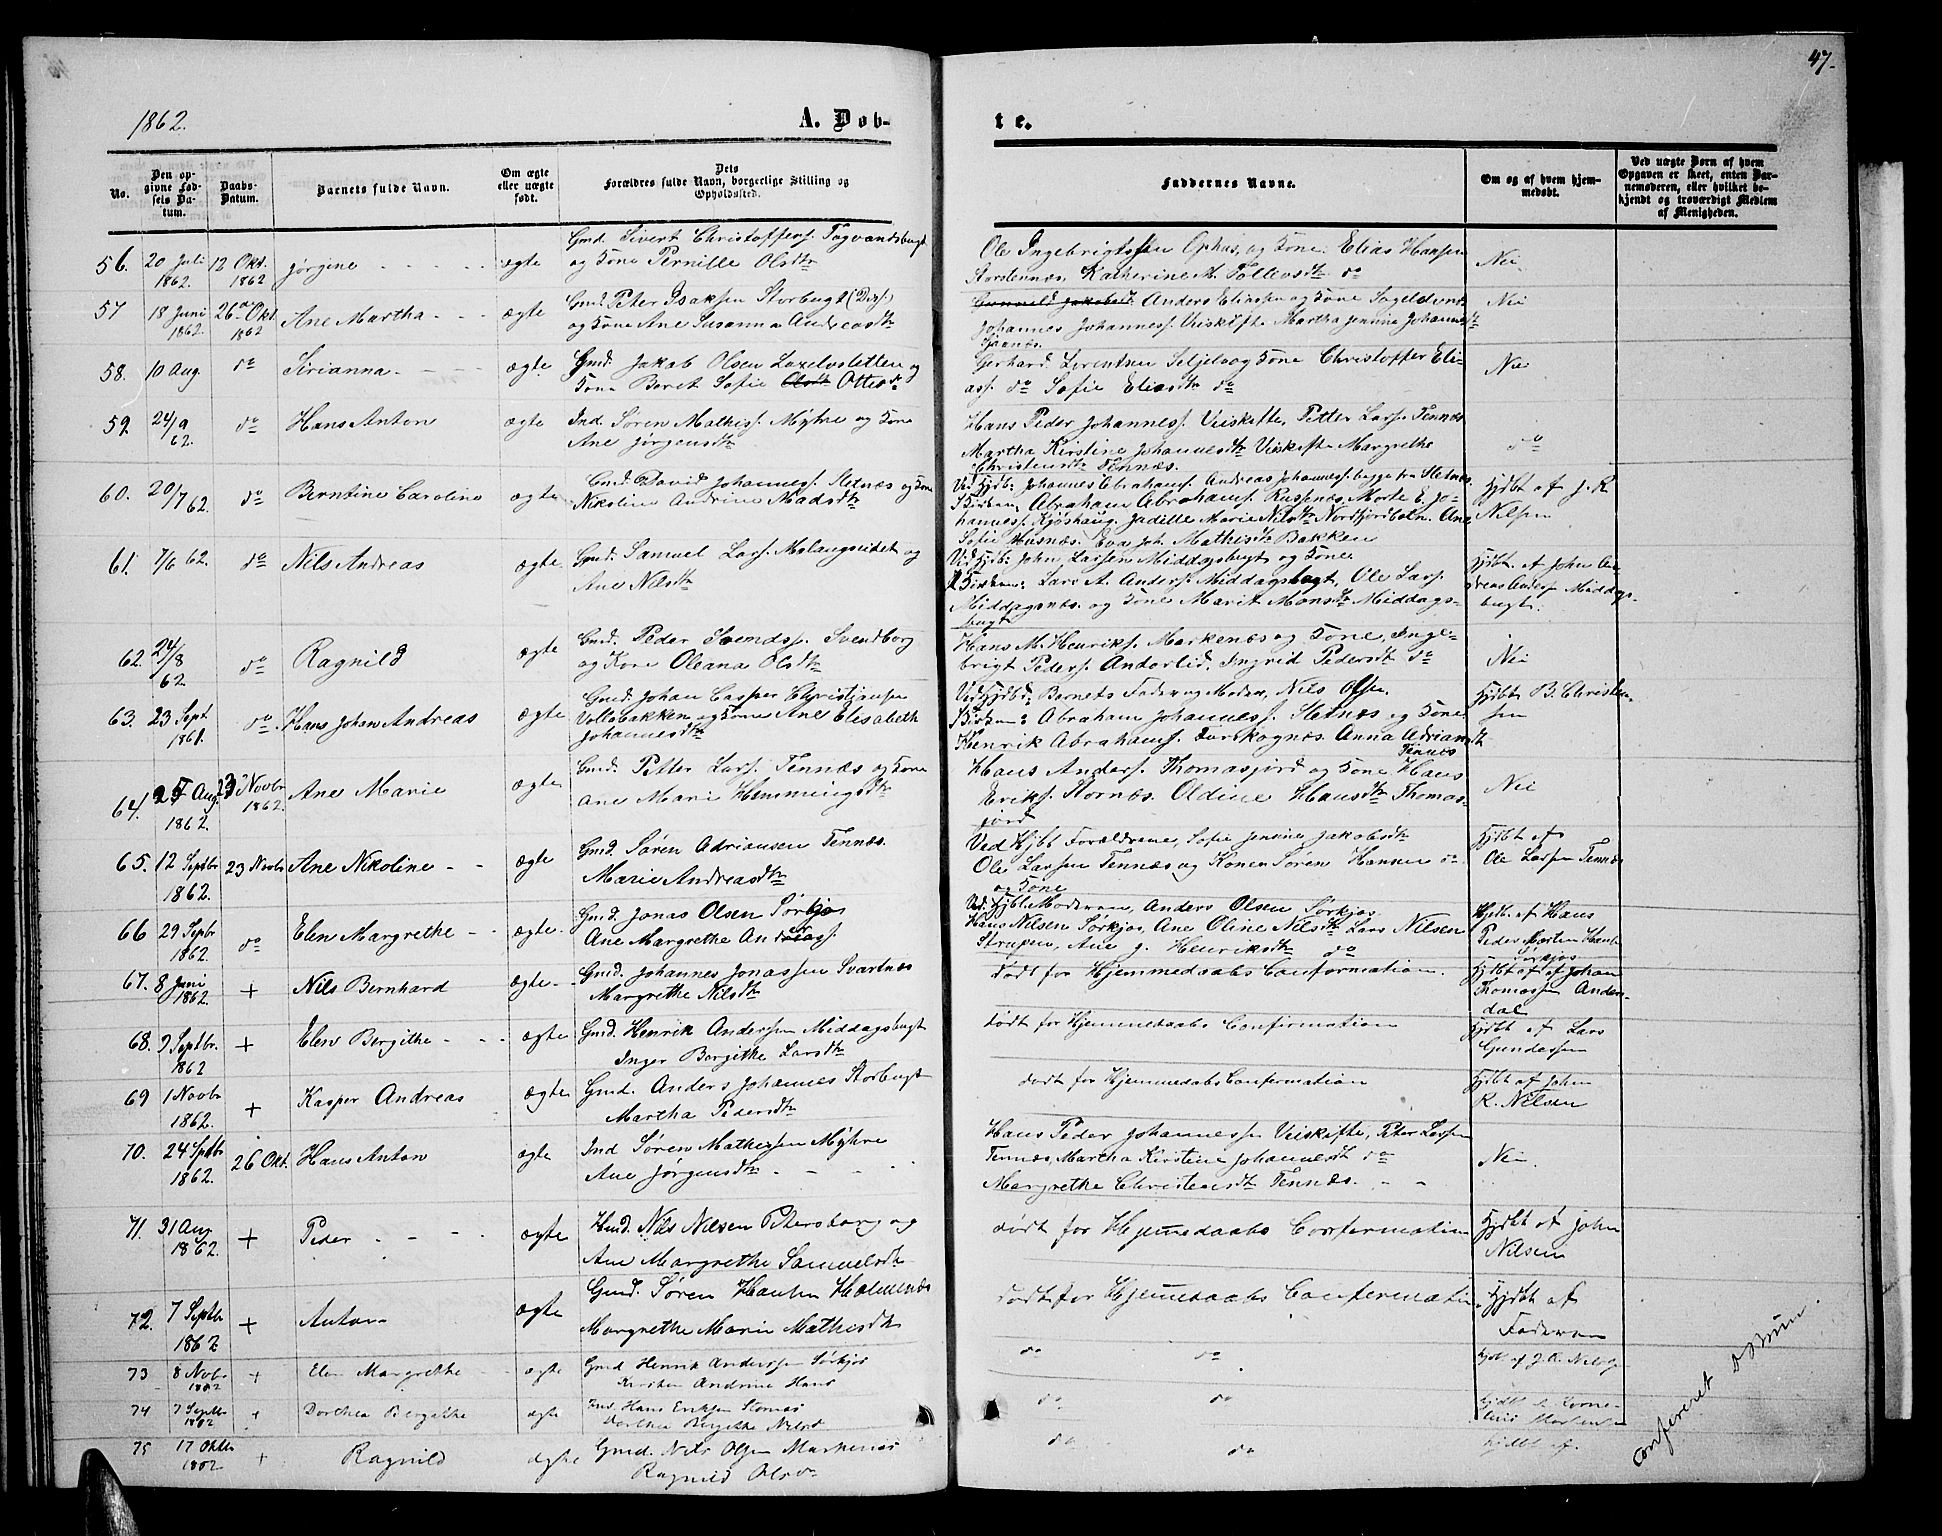 47.
1862.
A. Døb-
te.
No.
Den opgivne Fødsels Datum.
Daabs-Datum.
Barnets fulde Navn.
Om ægte eller uægte født.
Dets Forældres fulde Navn, borgerlige Stilling og Opholdssted.
Faddernes Navne.
Om og af hvem hjemmedøbt.
Ved uægte Børn af hvem Opgaven er skeet, enten Barnemoderen, eller hvilket bekjendt og troværdigt Medlem af Menigheden.
56. 20 Juli 1862 12 Okt. 1862 Jørgine ægte Gmd. Sivert Christoffers. Tagvandsbugt
og Kone Pernille Olsdtr
Ole Ingebrigtssen Ophus, og Kone. Elias Hansen
Storstennæs, Katherine M. Tollevsdtr do
Nei
57 18 Juni 1862. 26de Okt. 1862 Ane Martha ægte Gmd. Peter Isaksen Storbugt
og Kone Ane Susanna Andreasdtr
Gunnild Jakobsd. Anders Eliassen og Kone
Johannes Johanness. Veiskifte Martha Jensine Johannesdtr
Nei
58. 10 Aug. do Sirianna ægte Gmd. Jakob Olsen Laxelvsletten og
Kone Beret Sofie Olsdtr Ottesdr
Gerhard Lorentsen Seljelv og Kone Christoffer Eli-
ass. do Sofie Eliasdtr do
Nei
59. 24/9 62. do Hans Anton ægte Ind. Søren Mathiss. Myhre og Kone
Ane Jørgensdtr
Hans Peder Johanness. Veiskifte, Petter Lars. Tennæs
Martha Kirstine Johannesdtr Veiskifte Margrethe
Christensdtr Tennæs.
do
60. 20/7 62. do Berntine Caroline ægte Gmd. David Johanness. Sletnæs og Kone
Nikoline Andrine Madsdtr
Ved Hjdb: Johannes Abrahams. Andreas Johanness. begge fra Sletnæs
I Kirken: Abraham Abrahams. Russenæs, Morte E. Jo-
hanness. Kjøshaug. Jadille Marie Nilsdtr Nordfjordbotn. Ane
Sofie Husnæs. Eva Joh. Mathisdtr Bakken
Hjdbt af J. R.
Nilsen
61. 7/6 62. do Nils Andreas ægte Gmd. Samuel Lars. Malangseidet og
Ane Nilsdtr
Ved Hjdb: John Larsen Middagsbugt og Kone
I Kirken: Lars A. Anders. Middagsbugt, Ole Lars.
Middagsnæs og Kone Marit Monsdtr Middags-
bugt
Hjdbt. af John An-
dreas Anders Middags-
bugt.
62. 24/8 62 do Ragnild ægte Gmd. Peder Svends. Svendborg
og Kone Oleana Olsdtr
Hans M. Henriks. Markenæs og Kone, Inge-
brigt Peders. Anderlid. Ingrid Pedersdtr do
Nei
63. 23 Sept 1861. do. Hans Johan Andreas ægte Gmd. Johan Casper Christiansen
Vollabakken og Kone Ane Elisabeth
Johannesdtr
Ved Hjdbd: Barnets Fader og Moder, Nils Olsen
I Kirken: Abraham Johanness. Sletnæs og Kone.
Henrik Abrahams. Anna Adriansdtr
Tennæs
Hjdbt B. Christen-
sen
64. 25 Aug. 1862. 23 Novbr 1862. Ane Marie ægte Gmd. Petter Lars. Tennæs og Kone
Ane Marie Hemmingsdtr
Hans Anders. Thomasjord og Kone Hans
Eriks. Stornæs. Oldine Hansdtr Thomas-
jord
Nei
65. 12 Septbr 1862. 23 Novbr Ane Nikoline ægte Gmd. Søren Adriansen Tennæs.
Marie Andreasdtr
Ved Hjbt Forældrene, Sofie Jensine Jakobsdtr
Ole Larssen Tennæs og Konen Søren Hansen do
og Kone
Hjdbt af
Ole Larsen Tennæs
66 29 Septbr 1862. do Elen Margrethe ægte. Gmd. Jonas Olsen Sørkjos
Ane Margrethe Anders.
Ved Hjbt Moderen, Anders Olsen Sørkjos
Hans Nilsen Sørkjos, Ane Oline Nilsdtr Lars Nilsen
Strupen, Ane J. Henriksdtr do
Hjdb. af Hans
Peder Morten Hans
Sørkjos
67. 8 Juni 1862. + Nils Bernhard ægte Gmd. Johannes Jonassen Svartnæs
Margrethe Nilsdtr
dødt for Hjemmedaabs Confermation.
Hjdbt af af Johan
Thomassen Anders-
dal
68. 9 Septbr. 1862 + Elen Bergithe ægte Gmd. Henrik Andersen Middagsbugt
Inger Bergithe Larsdtr
dødt for Hjemmedaabs Confermation
Hjdbt af Lars
Gundersen
69 1 Novbr 1862. + Kasper Andreas ægte Gmd. Anders Johannes Storbugt
Martha Pedersdtr
dødt for Hjemmedaabs Confermation
Hjdbt af John
R. Nilsen
70. 24 Septbr 1862. 26 Okt. Hans Anton ægte Ind Søren Mathissen Myhre
Ane Jørgensdtr
Hans Peder Johannessen Veiskifte, Peter Larsen
Tennæs, Martha Kirstine Johannesdt do
Margrethe Christensdtr Tennæs.
Nei.
71. 31 Aug 1862. + Peder ægte Hmd. Nils Nilsen Petersborg og
Ane Margrethe Samuelsdtr
dødt for Hjemmedaabs Confermation
Hjdbt af John
Nilsen
72. 7 Septbr 1862 + Anton ægte Gmd. Søren Hansen Holmenæs
Margrethe Marie Mathisdtr
dødt for Hjemmedaabs Confermation
Hjdbt af
Faderen
73 8 Novbr 1862 + Elen Margrethe ægte Gmd Henrik Anderssen Sørkjos
Kirsten Andrine Hans
do do
hjdbt af J. R. Nils
74 7 Septbr 1862 + Dorthea Bergithe ægte Ind. Hans Eriksen Stornæs
Dorthea Bergithe Nilsd
do do
hjdbt af Korne-
lius Mortensen
75 17 Oktbr 1862 + Ragnild ægte Gmd. Nils Olsen Markenæs
Ragnild Olsdr
do do
hjdbt af.
Confereret